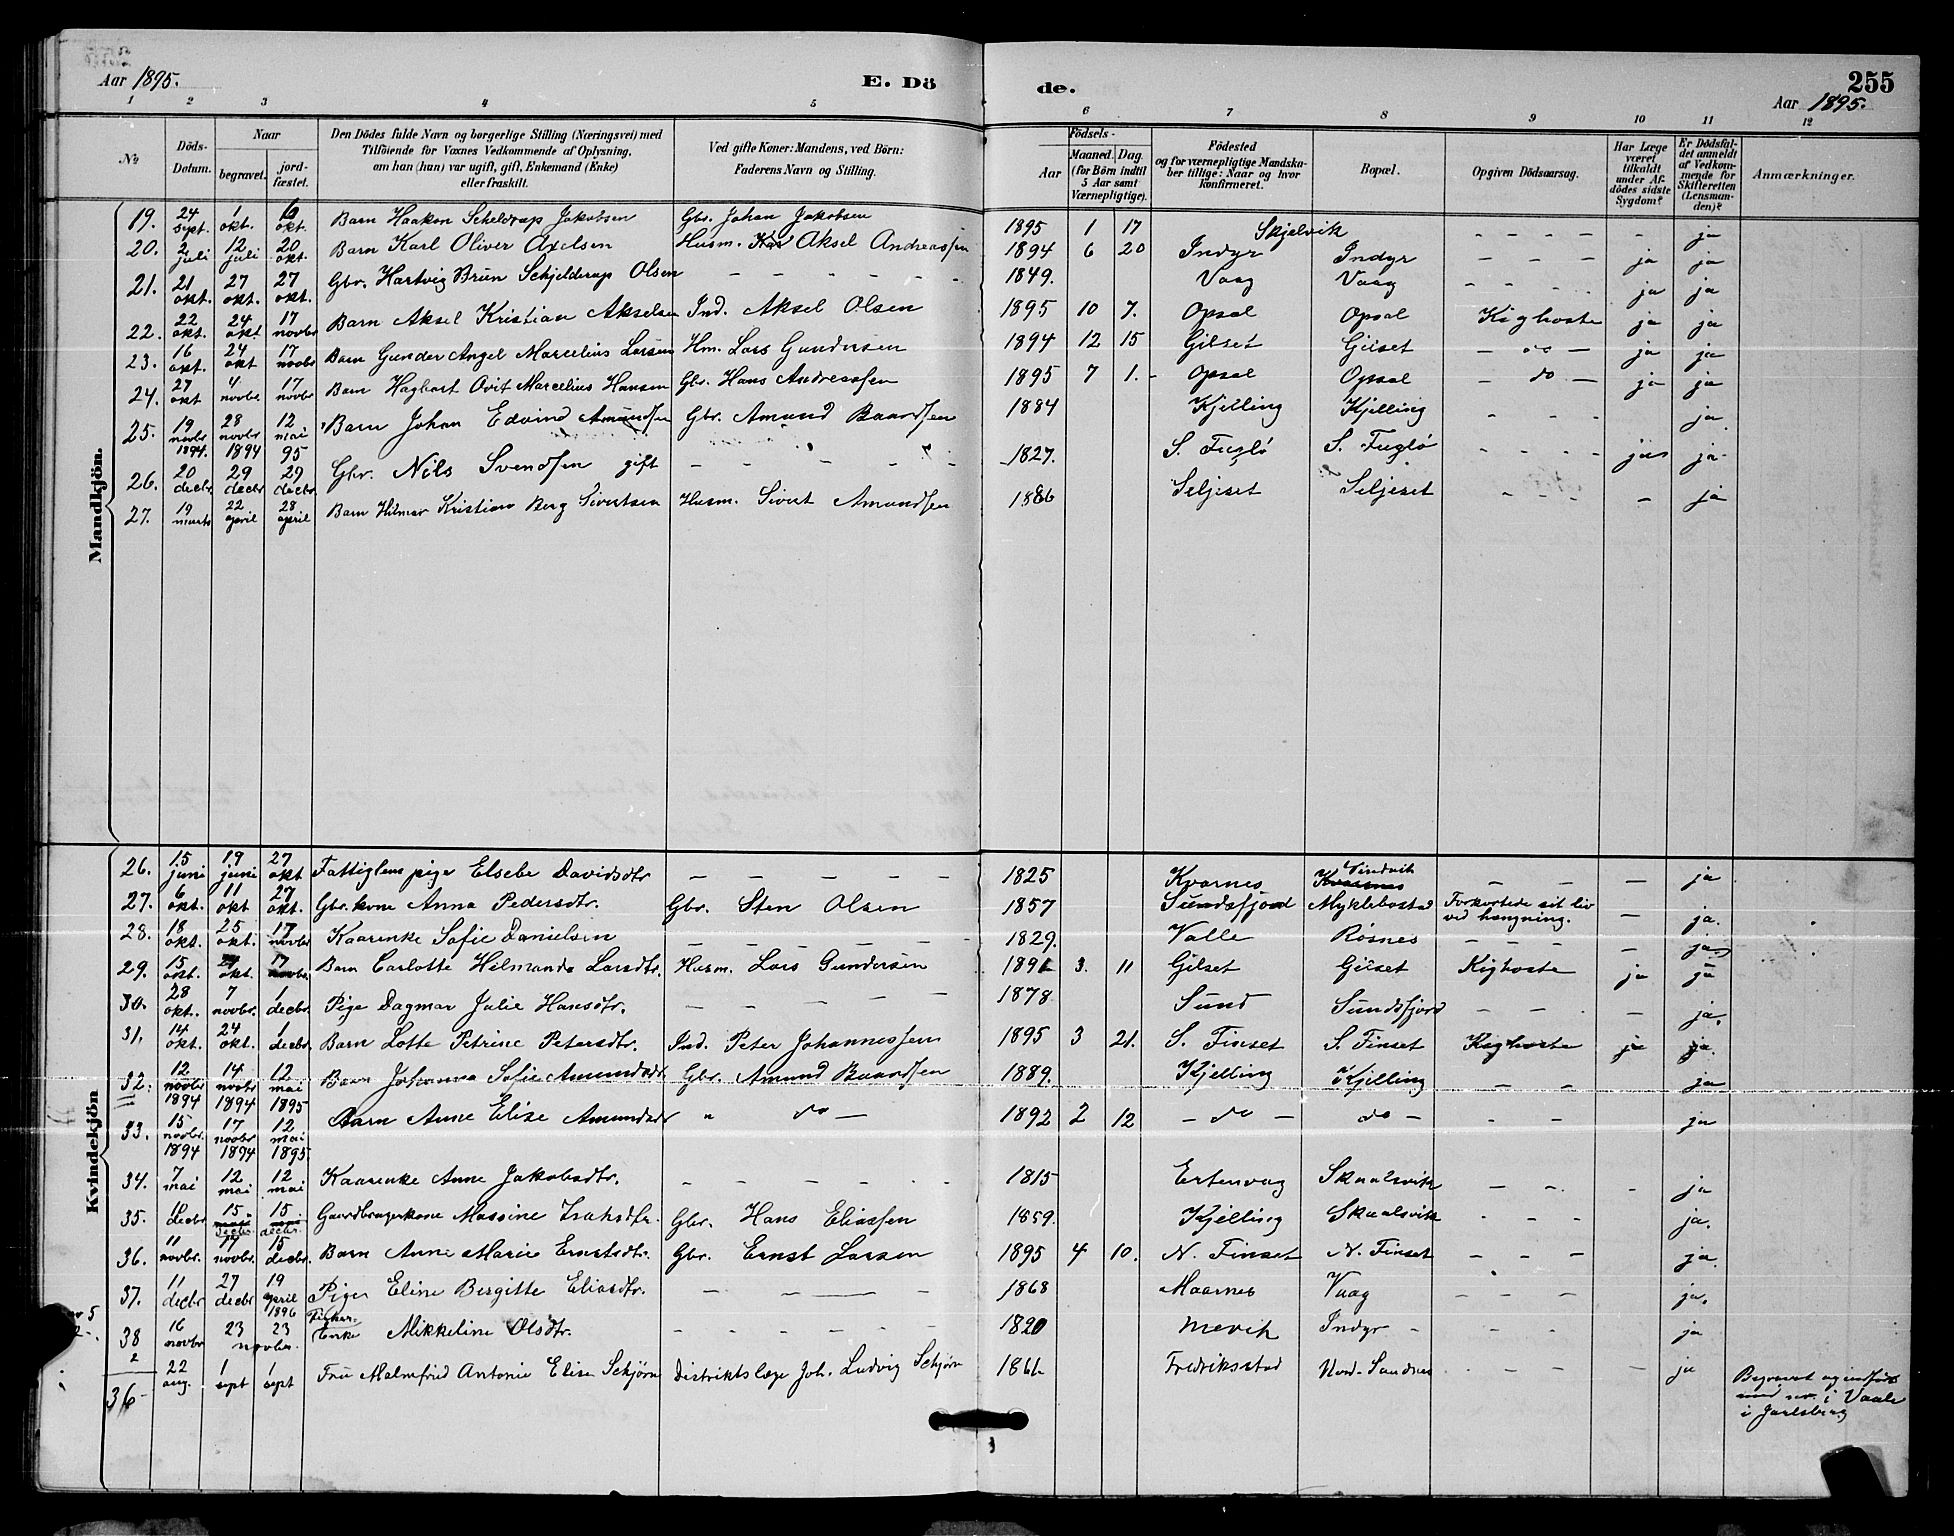 Aar 1895.
E. Dö
de.
255
Aar 1895.
1 2 3 4 5 6 7 8 9 10 11 12
No
Döds-Datum.
Naar
begravet.
jord-fæstet.
Den Dödes fulde Navn og borgerlige Stilling (Næringsvei) med
Tilföiende for Voxnes Vedkommende af Oplysning,
om han (hun) var ugift, gift, Enkemand (Enke)
eller fraskilt.
Ved gifte Koner: Mandens, ved Börn:
Faderens Navn og Stilling.
Födsels-
Aar
Maaned. Dag.
(for Börn indtil
5 Aar samt
Værnepligtige).
Födested
og for værnepligtige Mandska-
ber tillige: Naar og hvor
konfirmeret.
Bopæl.
Opgiven Dödsaarsag.
Har Læge
været
tilkaldt
under Af-
dödes sidste
Sygdom?
Er Dödsfal-
det anmeldt
af Vedkom-
mende for
Skifteretten
(Lensman-
den)?
Anmærkninger.
Mandkjön.
19. 24 sept. 1 okt. 6 okt. Barn Haakon Scheldrup Jakobsen Gbr. Johan Jakobsen 1895 1 17 Skjelvik - - - - - ja
20. 2 juli 12 juli 20 okt. Barn Karl Oliver Axelsen Husm. Aksel Andreassen 1894 6 20 Indyr Indyr - - - ja ja
21. 21 okt. 27 okt. 27 okt. Gbr. Hartvig Brun Schjelderup Olsen - - - - - 1849. Vaag Vaag - - - ja ja
22. 22 okt. 24 okt. 17 novbr Barn Aksel Kristian Akselsen Ind. Aksel Olsen 1895 10 7. Opsal Opsal Kighoste ja ja
23. 16 okt. 24 okt 17 novbr Barn Gunder Angel Marcelius Larsen Hm. Lars Gundersen 1894 12 15 Gilset Gilset - do - ja ja
24. 27 okt 4 novbr. 17 novbr Barn Hagbart Ovit Marcelius Hansen Gbr. Hans Andreassen 1895 7 1. - Opsal Opsal - do - ja ja
25. 19 novbr 1894. 28 novbr 1894 12 mai 95 Barn Johan Edvind Amundsen Gbr. Amund Baardsen 1884 Kjelling Kjelling - - - ja
26. 20 decbr 29 decbr 29 decbr. Gbr. Nils Svendsen gift - - - - - 1827. S. Fuglö S. Fuglö - - - - ja ja
27. 19 marts 22 april 28 april Barn Hilmar Kristian Berg Sivertsen Husm. Sivert Amundsen 1886 Seljeset Seljeset - - - - ja
Kvindekjön
26. 15 juni 19 juni 27 okt Fattiglem pige Elsebe Davidsdtr - - - - - 1825 Kvarnes Kvarnes Vindvik - - - ja
27. 6 okt. 11 okt 27 okt. Gbr. kone Anna Pedersdtr. Gbr. Sten Olsen 1857 Sundsfjord Myklebostad Forkortede sit liv ved hængning. - ja.
28. 18 okt. 25 okt. 17 novbr Kaarenke Sofie Danielsen - - - - - 1829. Valle Rösnes - - - - ja
29. 15 okt. okt. 17 novbr. Barn Carlotte Hilmanda Larsdtr. Husm. Lars Gundersen 1891 3. 11 Gilset Gilset Kighoste ja ja
30. 28 okt. 7 novbr. 1 decbr. Pige Dagmar Julie Hansdtr. - - - - - 1878. Sund Sundsfjord - - - - ja.
31. 14 okt. 24 okt. 1 decbr. Barn Lotte Petrine Petersdtr. Ind. Peter Johannessen 1895 3 21. S. Finset S. Finset Kighoste ja ja.
32. 12 novbr 1894 14 novbr 1894 12 mai 1895 Barn Johanna Sofie Amundsdr Gbr. Amund Baardsen 1889. Kjelling Kjelling - - ja
33. 15 novbr. 1894 17 novbr 1894 12 mai 1895. Barn Anne Elise Amundsdr " do - 1892 2 12 - do - do - - - ja
34. 7 mai 12 mai 12 mai Kaarenke Anne Jakobsdtr. - - - - - 1815 Ertenvag Skaalsvik - - - ja
35. decbr 15 decbr 15 decbr. Gaardbrugerkone Massine Isaksdtr. Gbr. Hans Eliassen 1859. Kjelling Skaalsvik - - - ja.
36. 11 novbr. 17 novbr. 15 decbr. Barn Anne Marie Ernstsdtr. Gbr. Ernst Larsen 1895 4 10. N. Finset N. Finset - - - ja.
37. 11 decbr 27 decbr 19 april 1896 Pige Eline Bergitte Eliasdtr. - - - - 1868 Maarnes Vaag - - - ja.
38 16 novbr 23 23 novbr. Fisker. Enke Mikkeline Olsdtr. - - - - - 1820 Mevik Indyr - - - - ja
36- 22 aug. 1 sept 1 sept Fru Malmfrid Antonie Elise Schjörn Distriktslæge Joh. Ludvig Schjörn 1861. Fredriksstad Nord-Sandnes - - - - ja
Begravet og indført
i Vaale
i Jarlsberg